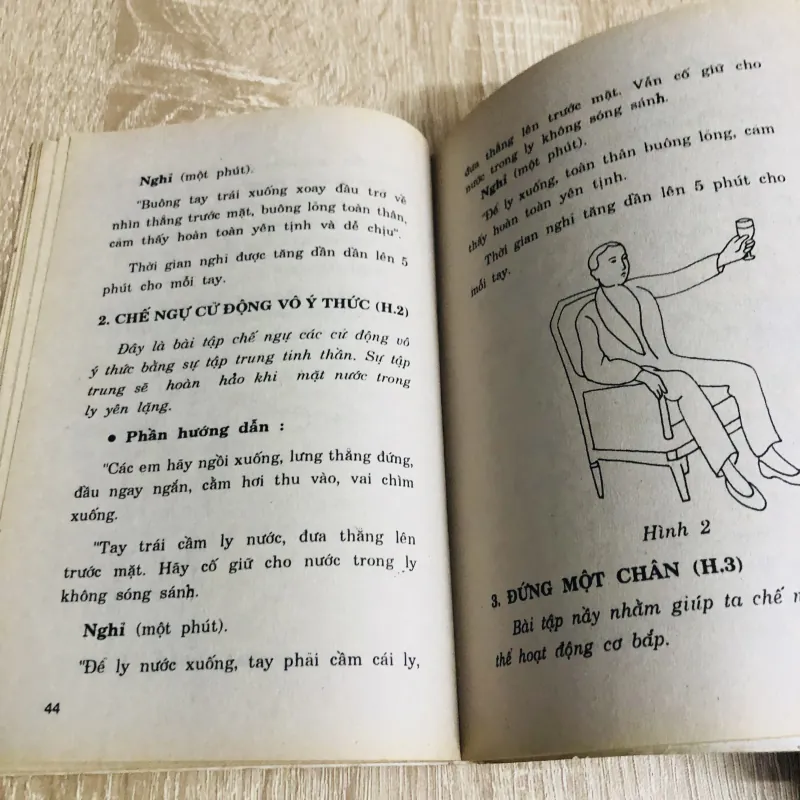 Nghỉ (một phút).
"Buông tay trái xuống xoay đầu trở về
nhìn thẳng trước mặt, buông lỏng toàn thân,
cảm thấy hoàn toàn yên tịnh và dễ chịu".
Thời gian nghỉ được tăng dần dần lên 5
phút cho mỗi tay.
2. CHẾ NGỰ CỬ ĐỘNG VÔ Ý THỨC (H.2)
Đây là bài tập chế ngự các cử động vô
ý thức bằng sự tập trung tinh thần. Sự tập
trung sẽ hoàn hảo khi mặt nước trong
ly yên lặng.
• Phần hướng dẫn :
"Các em hãy ngồi xuống, lưng thẳng đứng,
đầu ngay ngắn, cằm hơi thu vào, vai chìm
xuống.
"Tay trái cầm ly nước, đưa thẳng lên
trước mặt. Hãy cố giữ cho nước trong ly
không sóng sánh.
Nghỉ (một phút).
"Để ly nước xuống, tay phải cầm cái ly,
44
đưa thẳng lên trước mặt. Vẫn cố giữ cho
nước trong ly không sóng sánh.
Nghỉ (một phút).
"Để ly xuống, toàn thân buông lỏng, cảm
thấy hoàn toàn yên tịnh.
Thời gian nghỉ tăng dần lên 5 phút cho
mỗi tay.
Hình 2
3. ĐỨNG MỘT CHÂN (H.3)
Bài tập nầy nhằm giúp ta chế
thể hoạt động cơ bắp.